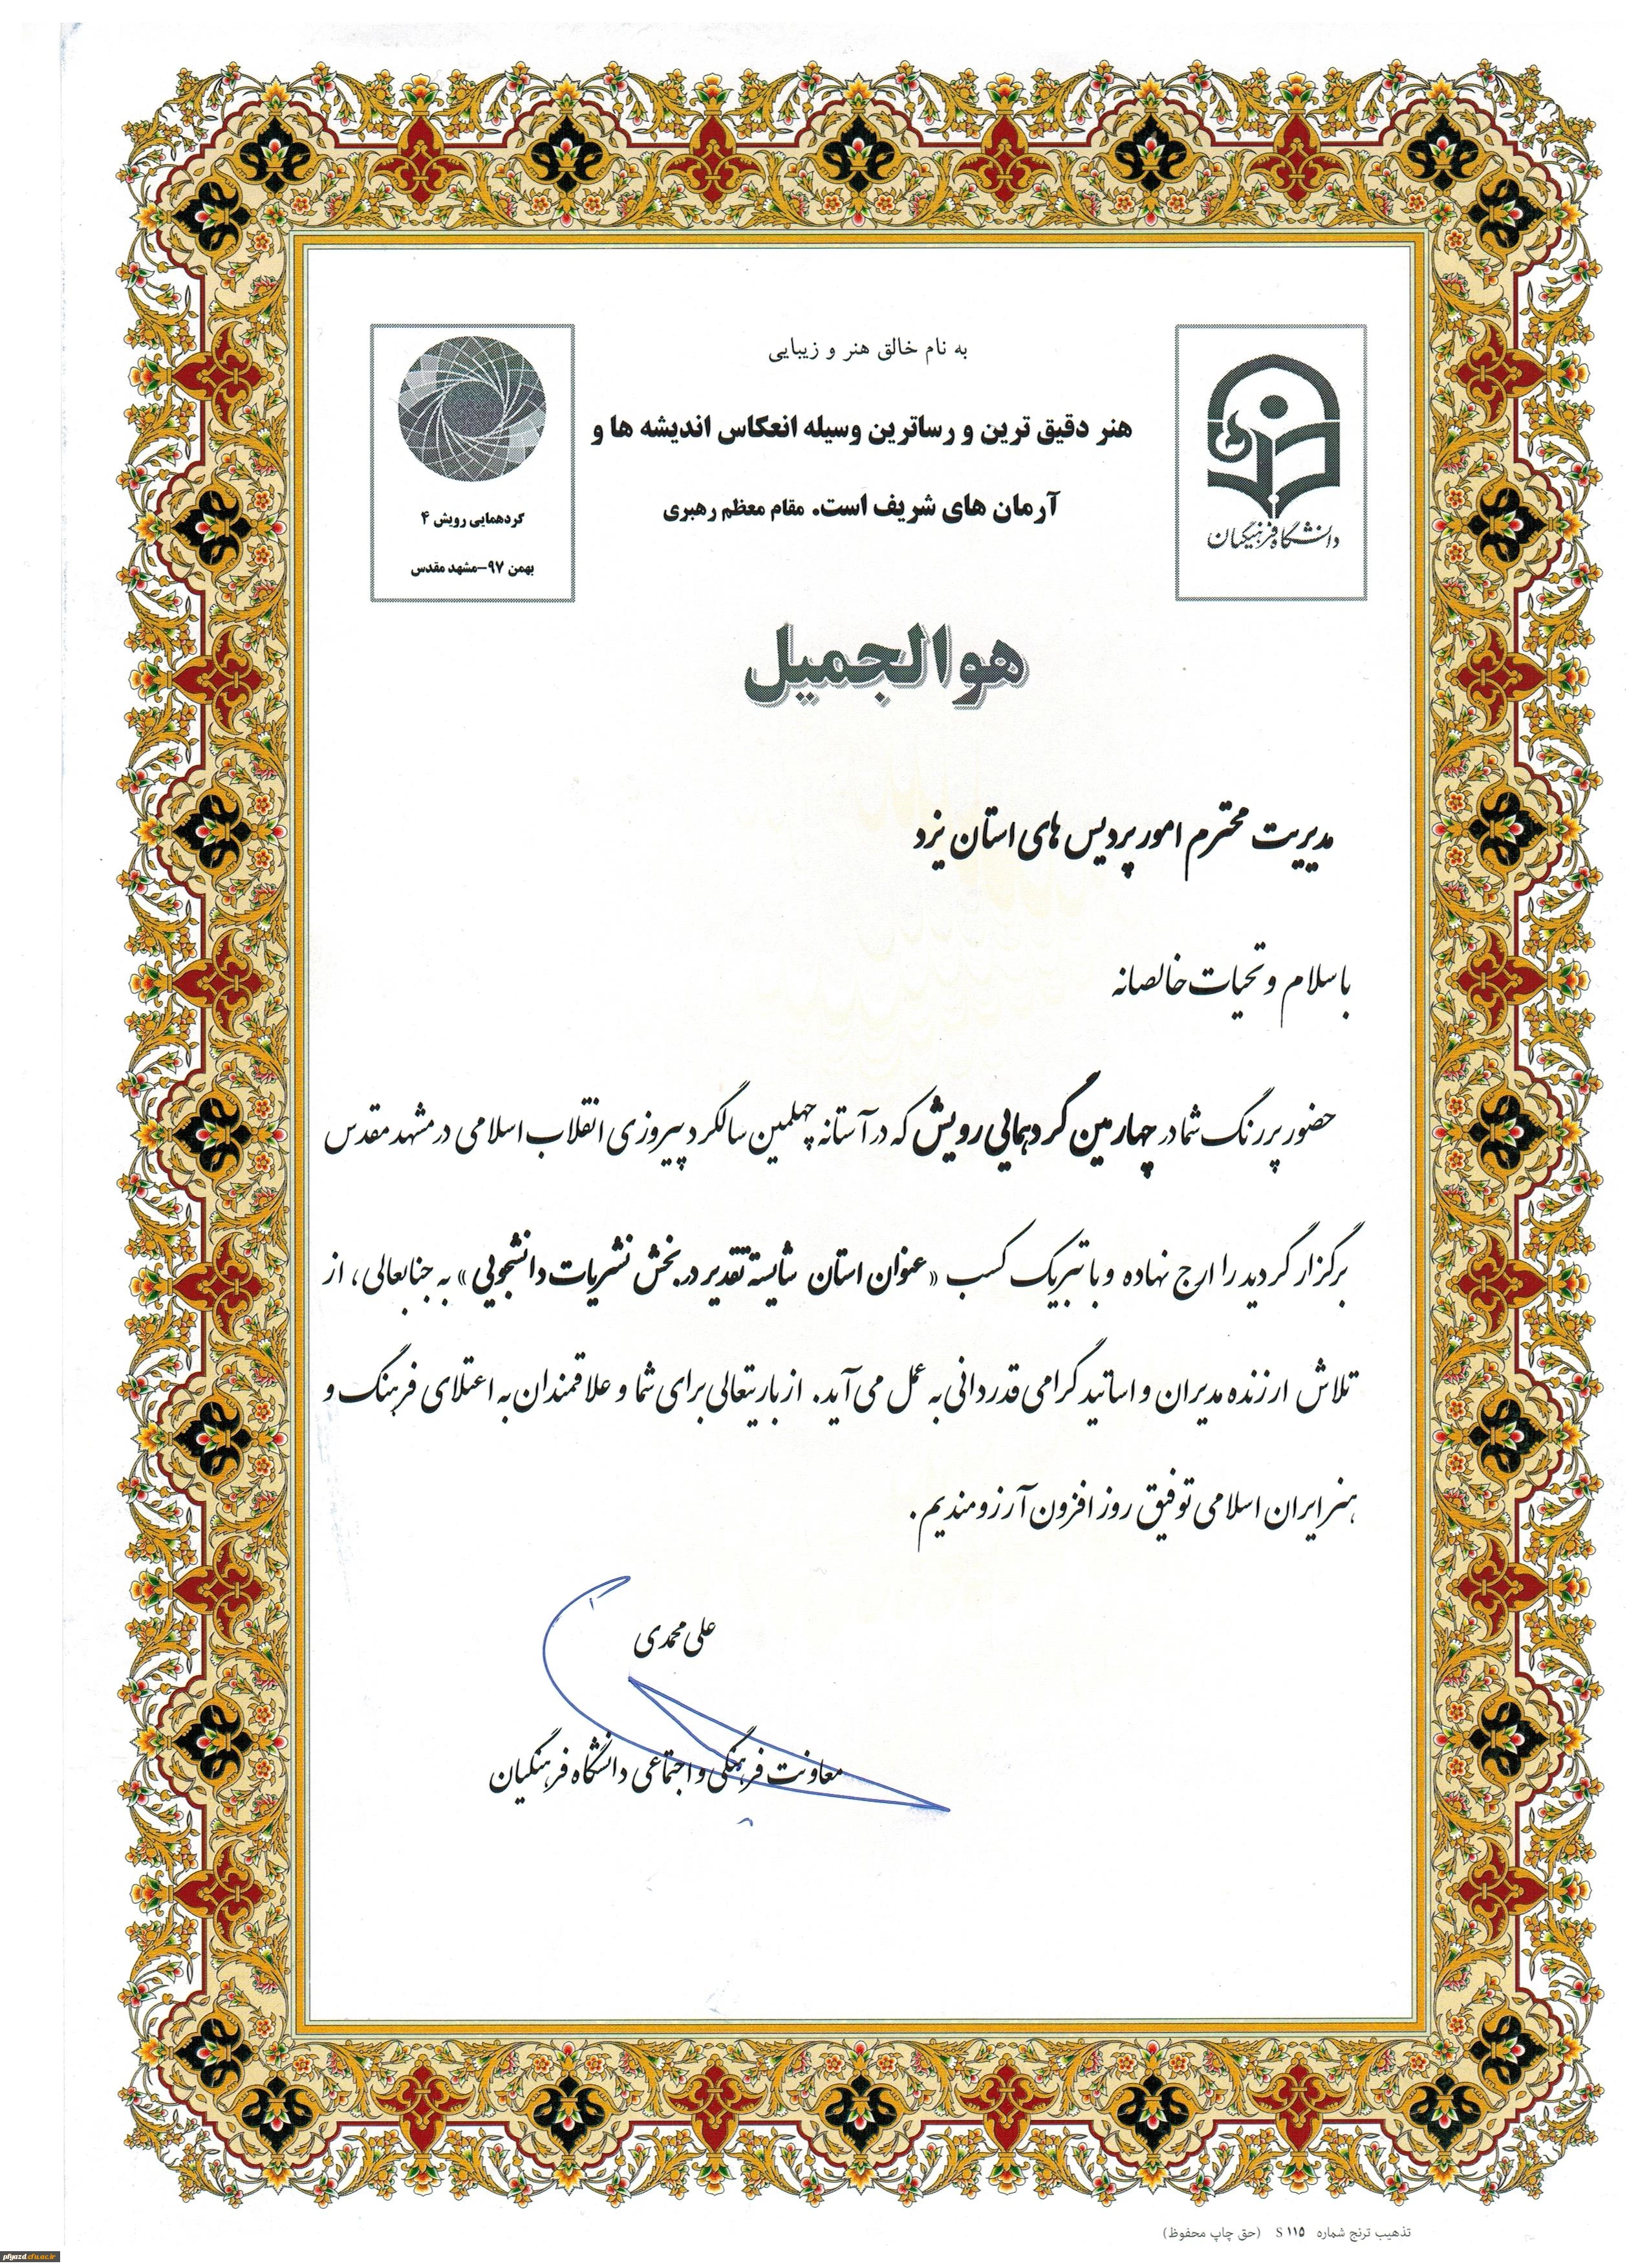 به نام خالق هنر و زیبایی
هنر دقیق ترین و رساترین وسیله انعکاس اندیشه ها و
آرمان های شریف است. مقام معظم رهبری
دانشگاه فرهنگیان
گردهمایی رویش ۴
بهمن ۹۷-مشهد مقدس
هوالجمیل
مدیریت محترم امور پردیس های استان یزد
با سلام و تحیات خالصانه
حضور پررنگ شما در چهارمین گردهمایی رویش که در آستانه چهلمین سالگرد پیروزی انقلاب اسلامی در مشهد مقدس
برگزار گردید را ارج نهاده و با تبریک کسب «عنوان استان شایسته تقدیر در بخش نشریات دانشجویی» به جنابعالی، از
تلاش ارزنده مدیران و اساتید گرامی قدردانی به عمل می آید. از باریتعالی برای شما و علاقمندان به اعتلای فرهنگ و
هنر ایران اسلامی توفیق روز افزون آرزومندیم.
علی محمدی
معاونت فرهنگی و اجتماعی دانشگاه فرهنگیان
تذهیب ترنج شماره S ۱۱۵ (حق چاپ محفوظ)
pfyazd.cfu.ac.ir